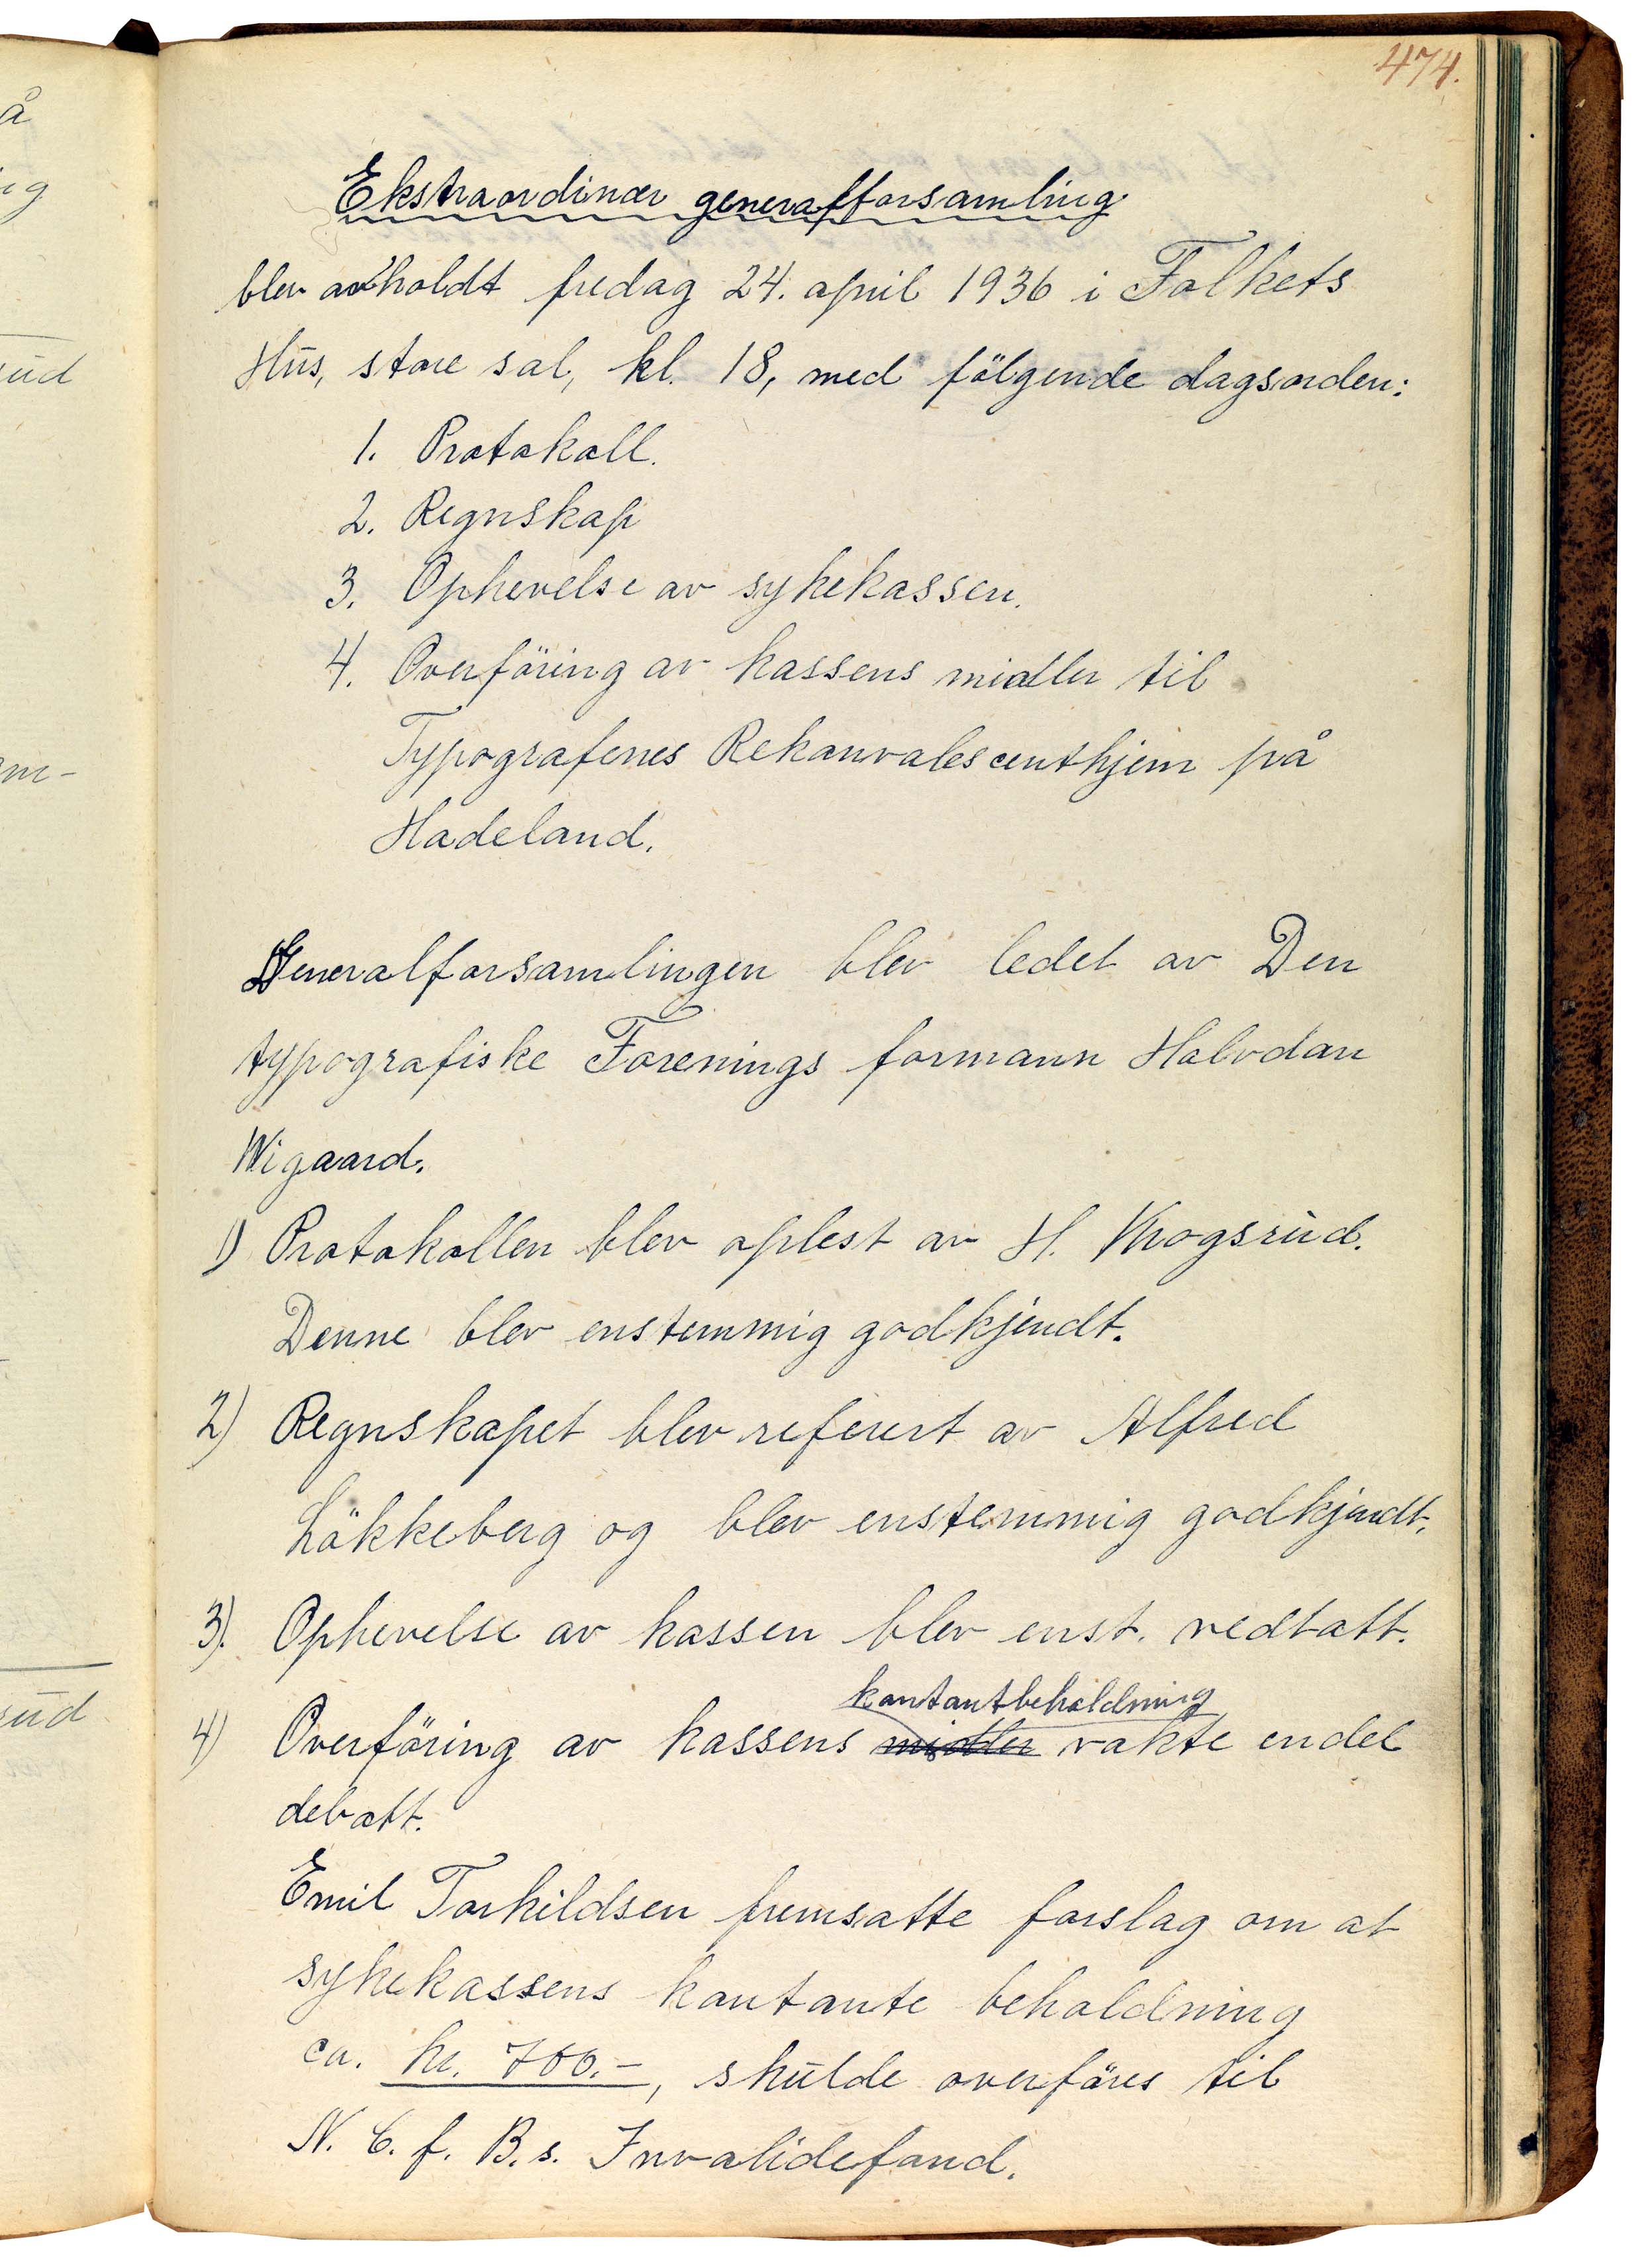 474.
Ekstraordinær generalforsamling
blev avholdt fredag 24. april 1936 i Folkets
Hus, store sal, kl. 18, med fölgende dagsorden:
1. Protokoll.
2. Regnskap
3. Ophevelse av sykekassen.
4. Overföring av kassens midler til
Typografenes Rekonvalescenthjem på
Hadeland.
Generalforsamlingen blev ledet av Den
typografiske Forenings formann Halvdan
Wigaard.
1) Protokollen blev oplest av H. Krogsrud.
Denne blev enstemmig godkjendt.
2) Regnskapet blev referert av Alfred
Lökkeberg og blev enstemmig godkjendt.
3). Ophevelse av kassen blev enst. vedtatt.
kontantbeholdning
4) Overföring av kassens midler vakte endel
debatt.
Emil Torkildsen fremsatte forslag om at
sykekassens kontante beholdning
ca. kr. 700.-, skulde overföres til
N. C. f. B.s. Invalidefond.
å
ig
rud
om-
rud